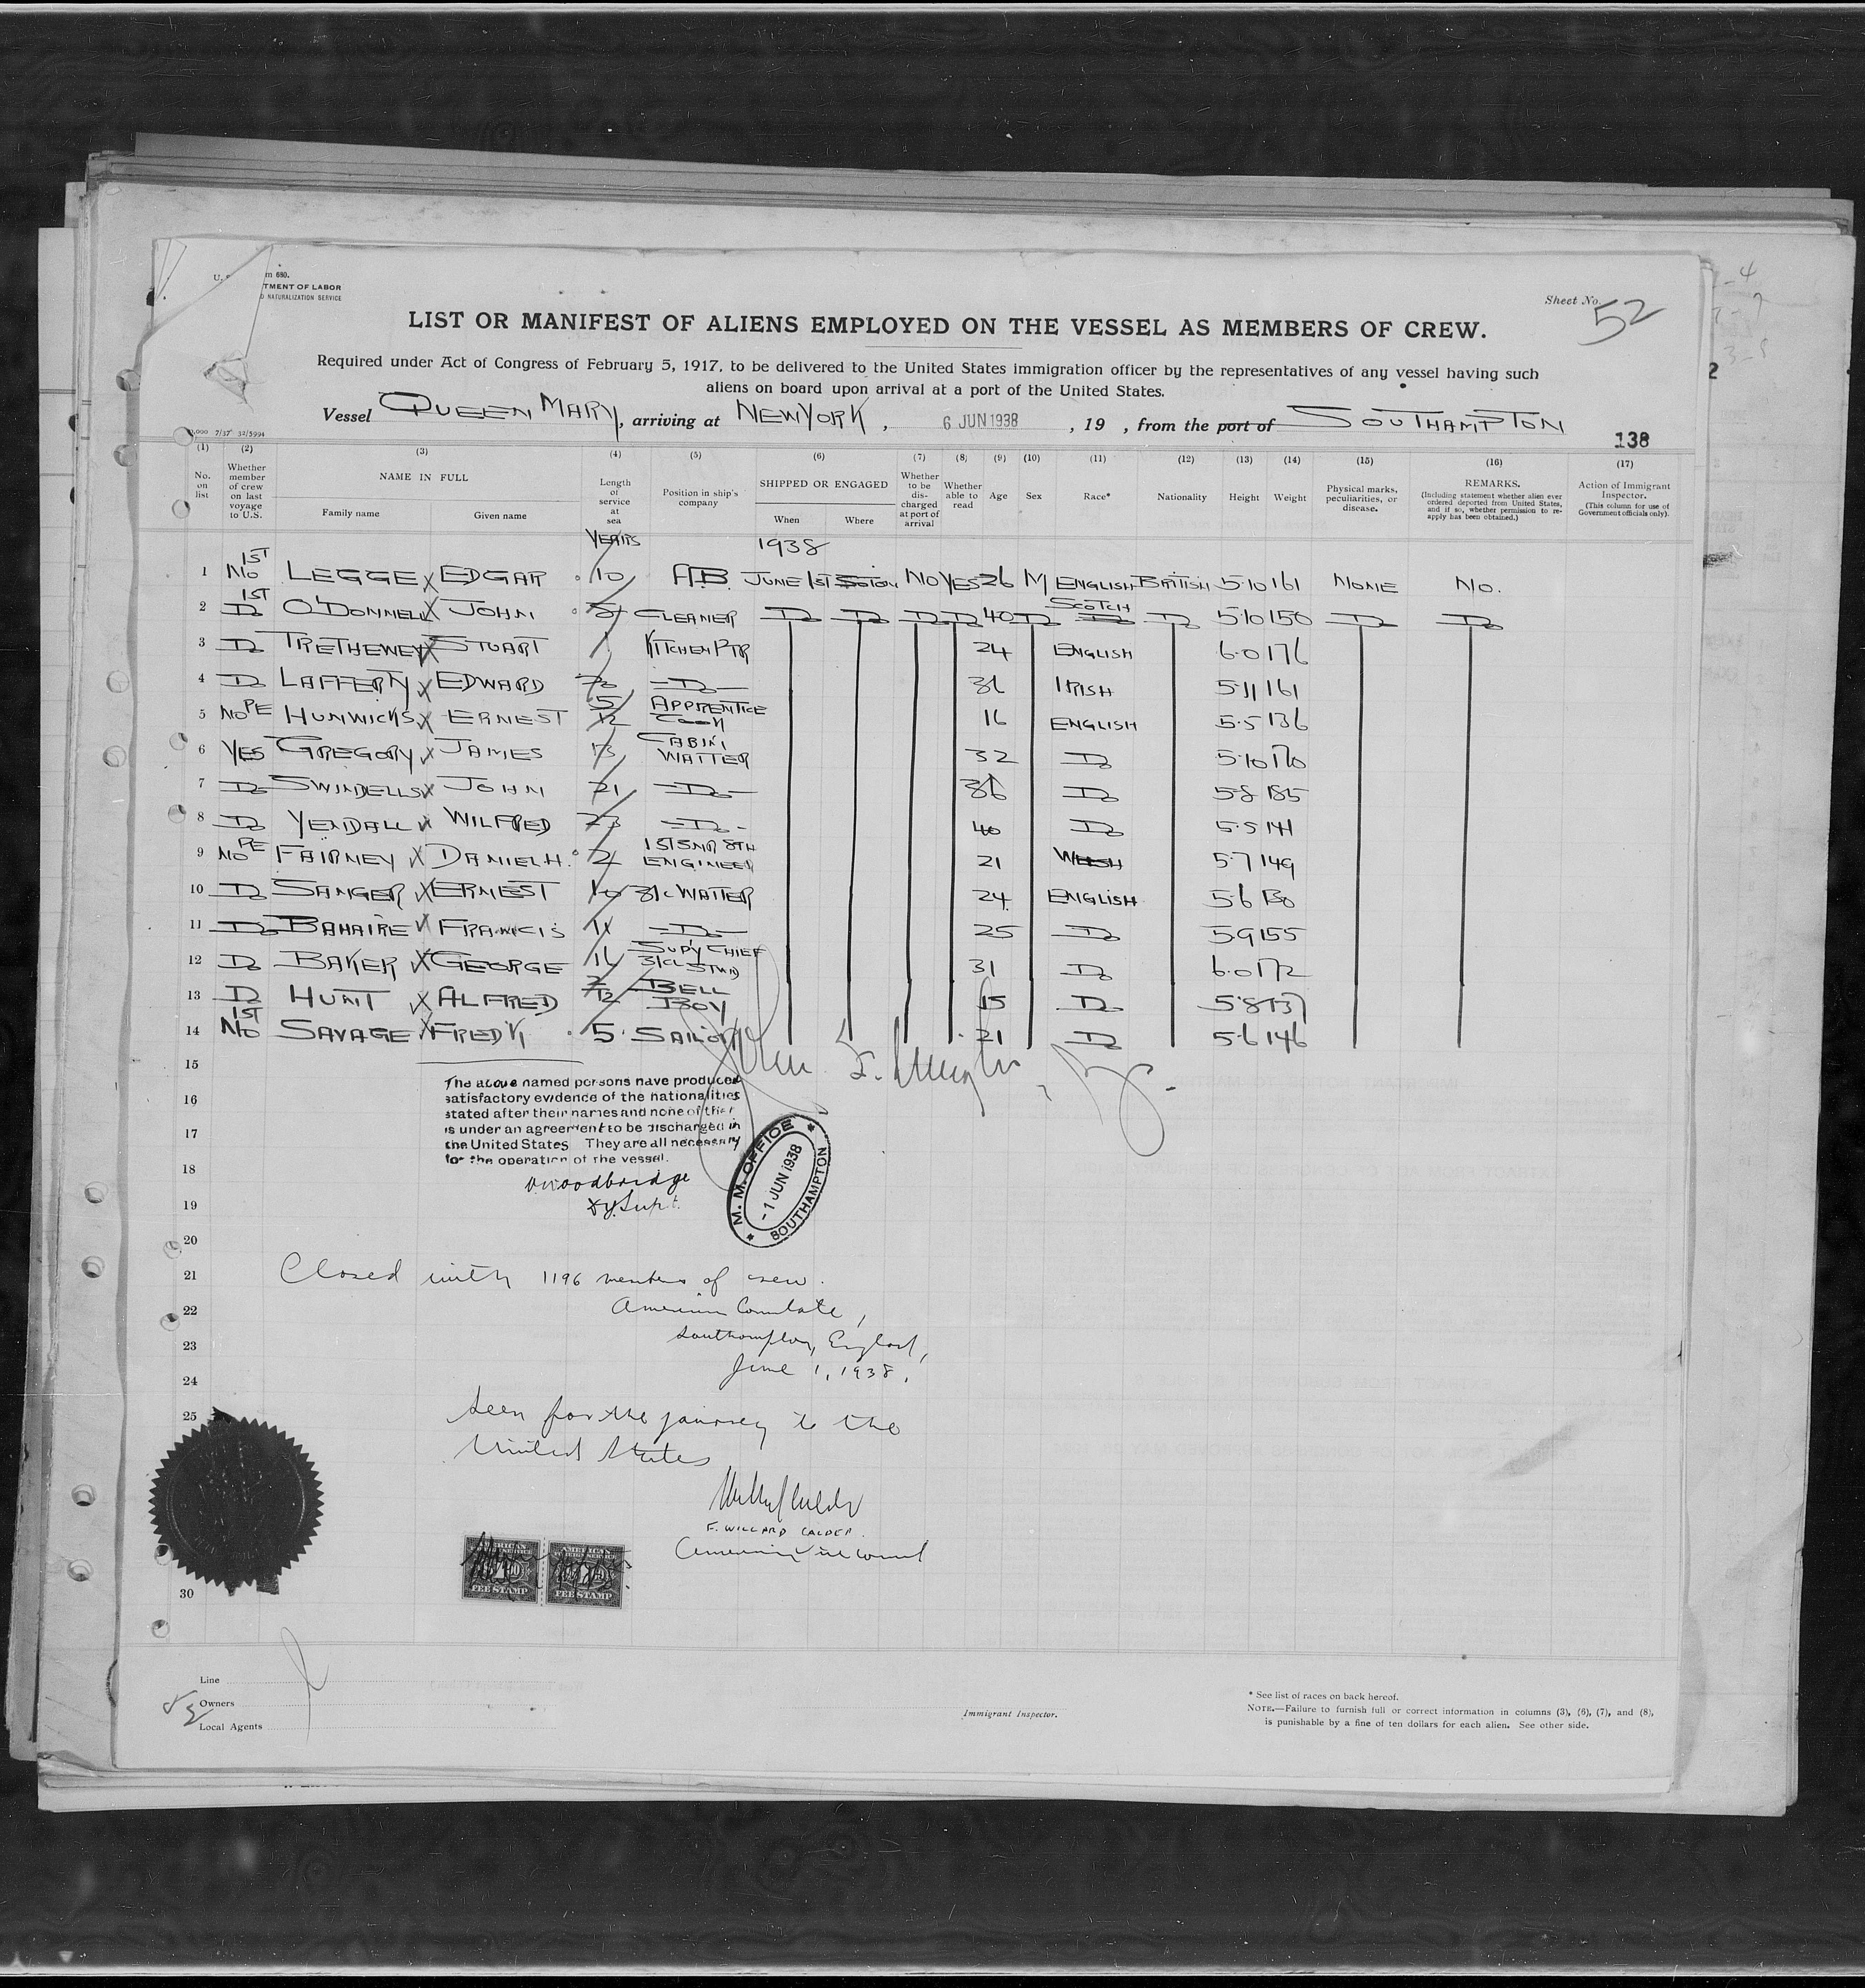 Sheet No. 52
m 680.
TMENT OF LABOR
NATURALIZATION SERVICE
LIST OR MANIFEST OF ALIENS EMPLOYED ON THE VESSEL AS MEMBERS OF CREW.
Required under Act of Congress of February 5, 1917, to be delivered to the United States immigration officer by the representatives of any vessel having such
aliens on board upon arrival at a port of the United States.
Vessel QUEEN MARY, arriving at NEW YORK, 6 JUN 1938, 19 , from the port of SOUTHAMPTON
138
(1) (2) (3) (4) (5) (6) (7) (8) (9) (10) (11) (12) (13) (14) (15) (16) (17)
No. on list
Whether member of crew on last voyage to U.S.
NAME IN FULL
Family name Given name
Length of service at sea
Position in ship's company
SHIPPED OR ENGAGED
When Where
Whether to be discharged at port of arrival
Whether able to read
Age Sex Race* Nationality Height Weight
Physical marks, peculiarities, or disease.
REMARKS.
(Including statement whether alien ever ordered deported from United States, and if so, whether permission to re-apply has been obtained.)
Action of Immigrant Inspector.
(This column for use of Government officials only).
YEARS 1938
1 1ST NO LEGGE X EDGAR 10 A.B. JUNE 1ST SOTON NO YES 26 M ENGLISH BRITISH 5·10 161 NONE NO.
2 1ST Do O'DONNELL X JOHN CLEANER Do Do Do Do 40 Do SCOTCH Do 5·10 150 Do Do
3 Do TRETHEWEY X STUART 1 KITCHEN PTR 24 ENGLISH 6·0 176
4 Do LAFFERTY X EDWARD Do IRISH 5·11 161
5 NO RE HUNWICKS X ERNEST 5/12 APPRENTICE COOK 16 ENGLISH 5·5 136
6 YES GREGORY X JAMES 13 CABIN WAITER 32 Do 5·10 170
7 Do SWINDELLS X JOHN 21 Do 36 Do 5·8 185
8 Do YENDALL X WILFRED 23 Do 40 Do 5·5 141
9 NO RE FAIRNEY X DANIEL H. ENGINEER 21 WELSH 5·7 149
10 Do SANGER X ERNEST 10 3/C WAITER 24 ENGLISH 5·6 130
11 Do BAHAIRE X FRANCIS 11 Do 25 Do 5·9 155
12 Do BAKER X GEORGE 16 SUP'Y CHIEF 3/CL STWD 31 Do 6·0 172
13 Do HUNT X ALFRED 2/12 BELL BOY 15 Do 5·8 137
14 1ST NO SAVAGE X FREDK 5 SAILOR 21 Do 5·6 146
15
The above named persons have produced
16 satisfactory evidence of the nationalities
stated after their names and none of them
17 is under an agreement to be discharged in
the United States They are all necessary
for the operation of the vessel.
18 Woodbridge
19 Dy. Supt.
M. M. OFFICE
- 1 JUN 1938
SOUTHAMPTON
20
21 Closed with 1196 members of crew.
22 American Consulate,
23 Southampton, England,
24 June 1, 1938.
25 Seen for the journey to the
United States
F. WILLARD CALDER.
American Vice Consul
AMERICAN FOREIGN SERVICE FEE STAMP
AMERICAN FOREIGN SERVICE FEE STAMP
30
Line
Owners
Local Agents
Immigrant Inspector.
* See list of races on back hereof.
NOTE.—Failure to furnish full or correct information in columns (3), (6), (7), and (8),
is punishable by a fine of ten dollars for each alien. See other side.